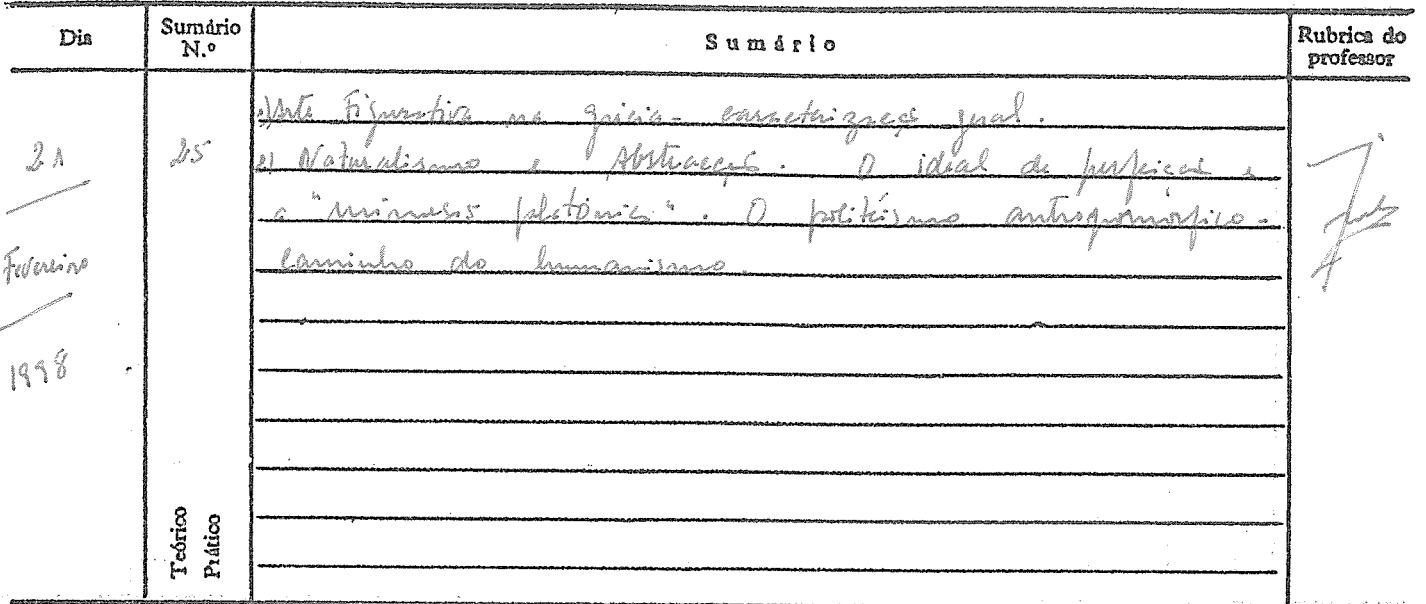 Dia
Sumário N.º
Sumário
Rubrica do professor
21
Fevereiro
1998
25
Arte Figurativa na Grécia - caracterização geral.
2) Naturalismo e Abstracção. O ideal de perfeição e
a "mimesis platónica". O politeísmo antropomórfico -
caminho do humanismo.
Teórico
Prático